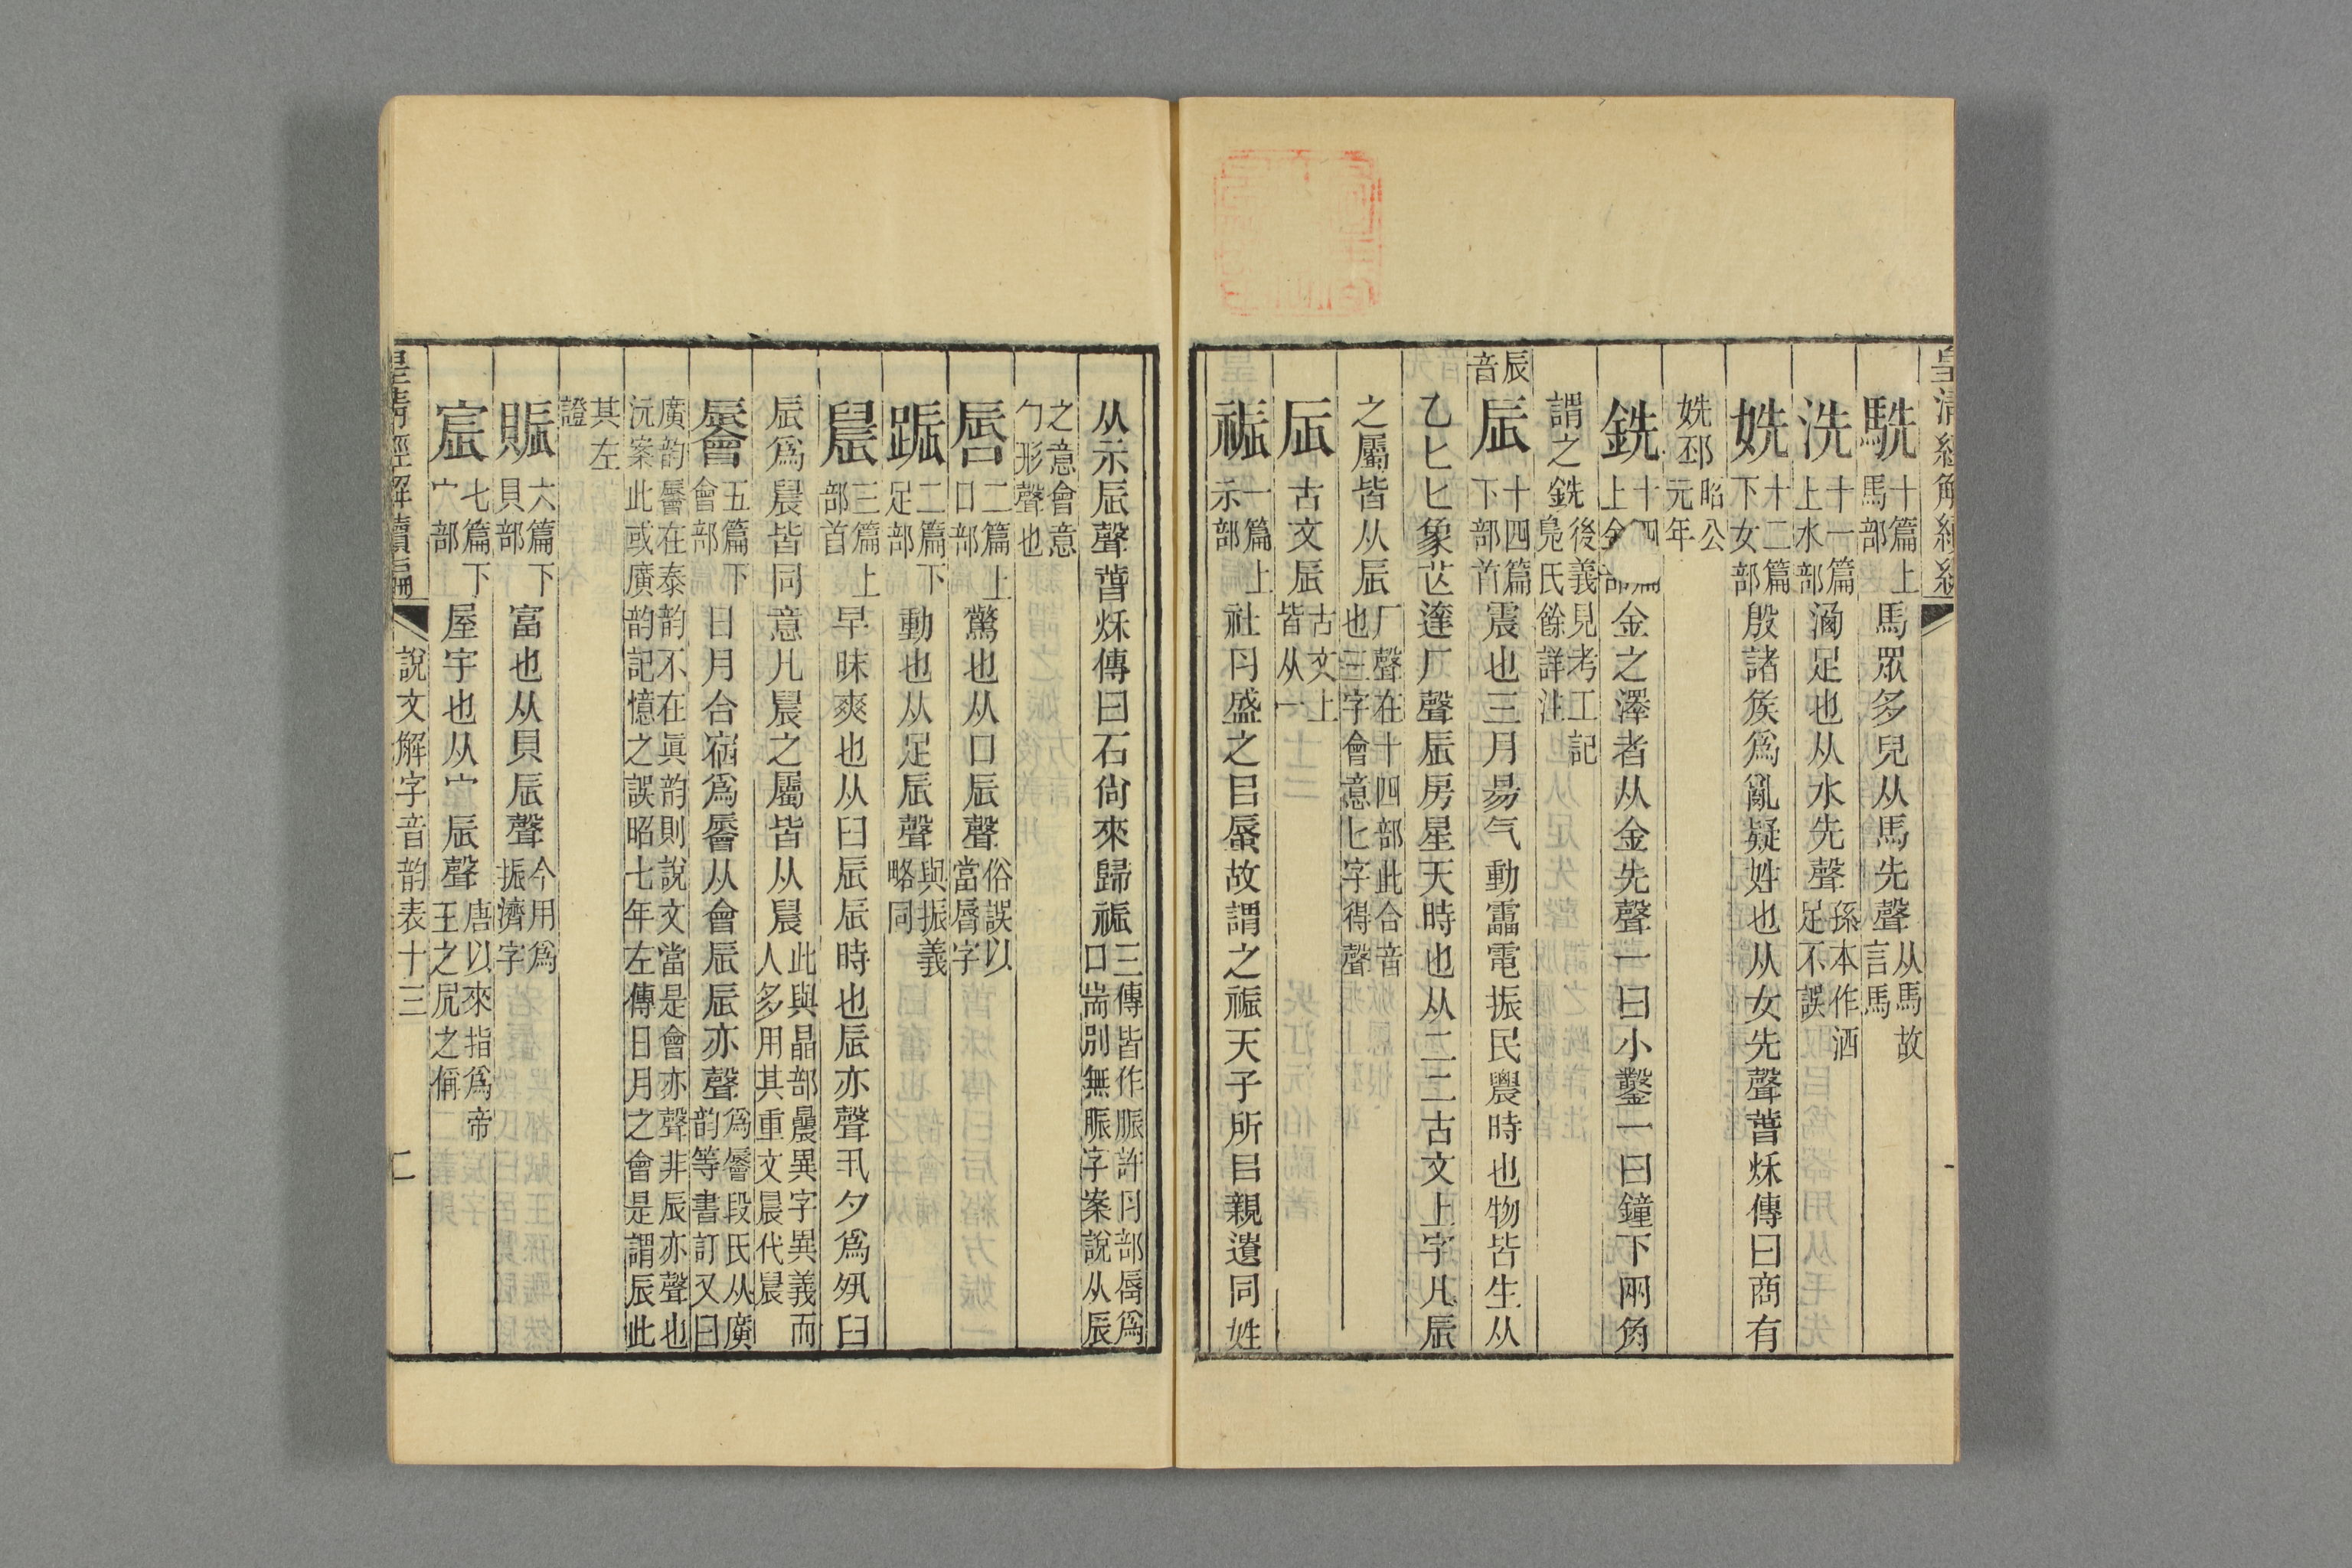 皇清經解續編
駪十篇上馬部馬眾多皃从馬先聲从馬故言馬
洗十一篇上水部洒足也从水先聲孫本作洒足不誤
姺十二篇下女部殷諸矦爲亂疑姓也从女先聲萅秌傳曰商有
姺邳昭公元年
銑十四篇上金部金之澤者从金先聲一曰小鑿一曰鐘下兩角
謂之銑後義見考工記鳧氏餘詳注
辰音
辰十四篇下部首震也三月昜气動靁電振民農時也物皆生从
乙匕匕象芒達厂聲辰房星天時也从二二古文上字凡辰
之屬皆从辰厂聲在十四部此合音也三字會意匕字得聲
𠨷古文辰古文上皆从一
祳一篇上示部社肉盛之㠯蜃故謂之祳天子所㠯親遺同姓
从示辰聲萅秌傳曰石尙來歸祳三傳皆作脤許肉部脣爲口耑別無脤字案說从辰
之意會意勹形聲也
唇二篇上口部驚也从口辰聲俗誤以當脣字
踬二篇下足部動也从足辰聲與振義略同
䢅三篇上部首早昧爽也从臼辰辰時也辰亦聲丮夕爲𡖊臼
辰爲䢅皆同意凡䢅之屬皆从䢅此與晶部曟異字異義而人多用其重文晨代䢅
䢈五篇下會部日月合宿爲䢈从會辰辰亦聲爲䢈段氏从廣韵等書訂又曰
廣韵䢈在泰韵不在眞韵則說文當是會亦聲非辰亦聲也沅案此或廣韵記憶之誤昭七年左傳日月之會是謂辰此
其左證
賑六篇下貝部富也从貝辰聲今用爲振濟字
宸七篇下宀部屋宇也从宀辰聲唐以來指爲帝王之凥之偁
皇清經解續編 說文解字音韵表十三 二